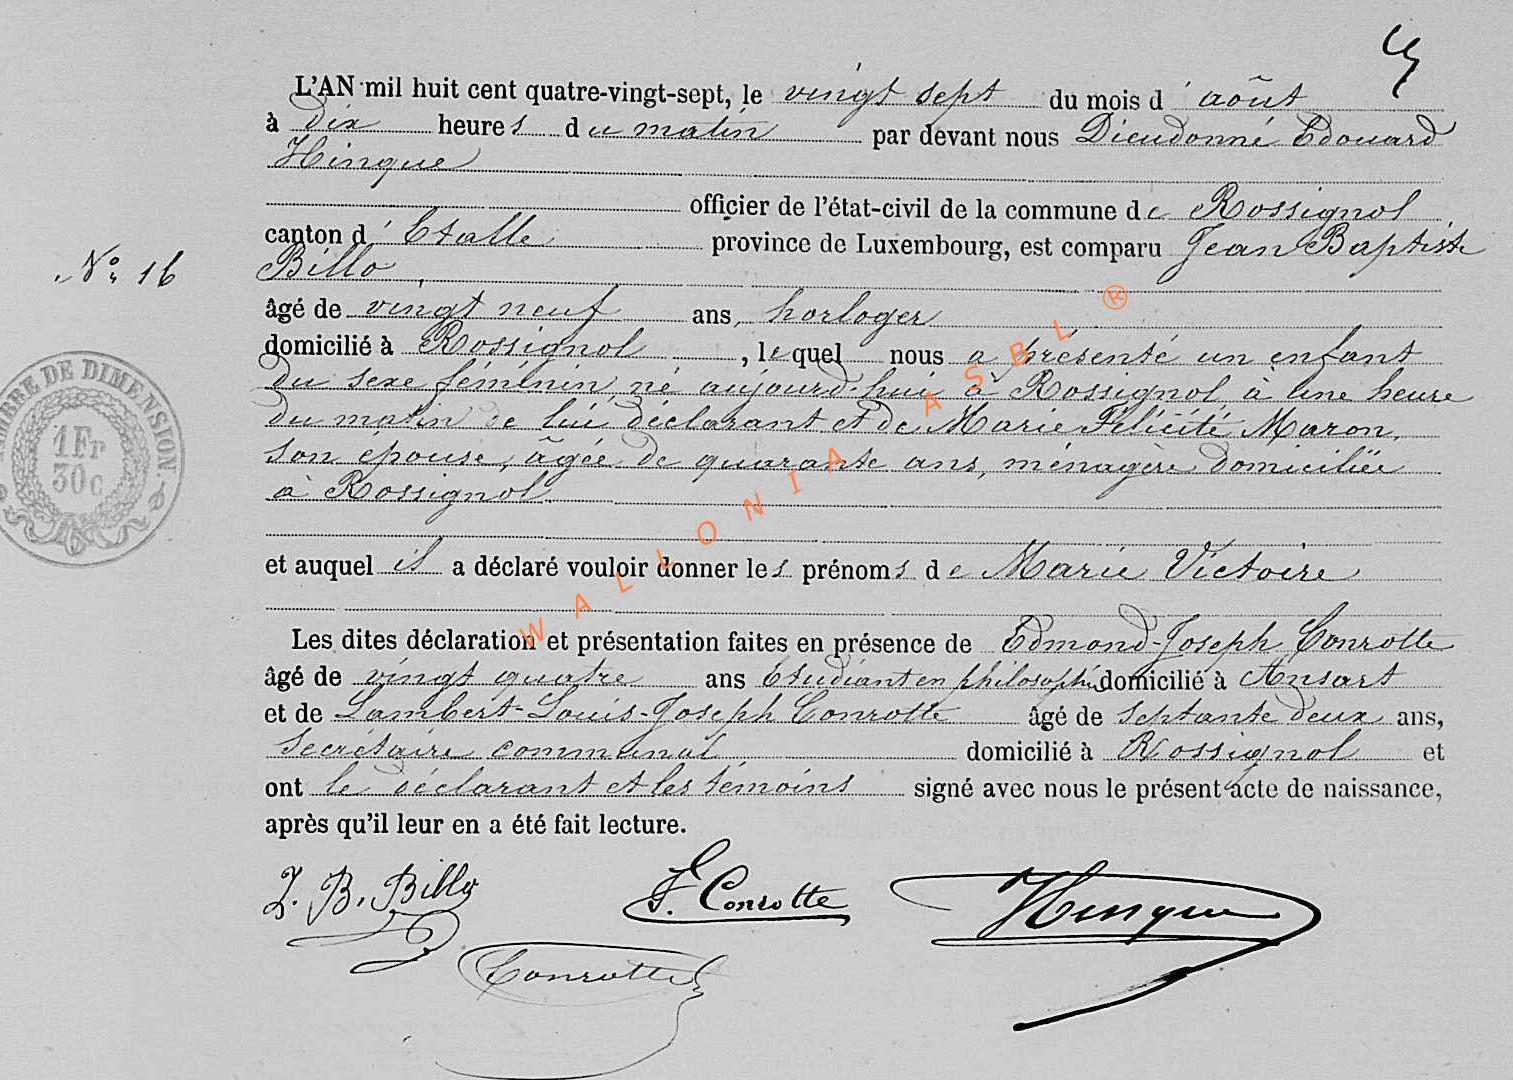 L'AN mil huit cent quatre-vingt-sept, le vingt sept du mois d' août
à dix heures du matin par devant nous Dieudonné Edouard
Hinque
officier de l'état-civil de la commune de Rossignol
canton d' Etalle province de Luxembourg, est comparu Jean Baptiste
N° 16
Billo
âgé de vingt neuf ans, horloger
domicilié à Rossignol, lequel nous a présenté un enfant
du sexe féminin, né aujourd'hui à Rossignol à une heure
du matin de lui déclarant et de Marie Félicité Maron,
son épouse, âgée de quarante ans, ménagère domiciliée
à Rossignol
et auquel il a déclaré vouloir donner les prénoms de Marie Victoire
Les dites déclaration et présentation faites en présence de Edmond-Joseph Conrotte
âgé de vingt quatre ans Etudiant en philosophie domicilié à Ansart
et de Lambert-Louis-Joseph Conrotte âgé de septante deux ans,
secrétaire communal domicilié à Rossignol et
ont le déclarant et les témoins signé avec nous le présent acte de naissance,
après qu'il leur en a été fait lecture.
J. B. Billo
Conrotte
Hinque
Conrotte
TIMBRE DE DIMENSION
1 Fr
30c
WALLONIA ASBL ®